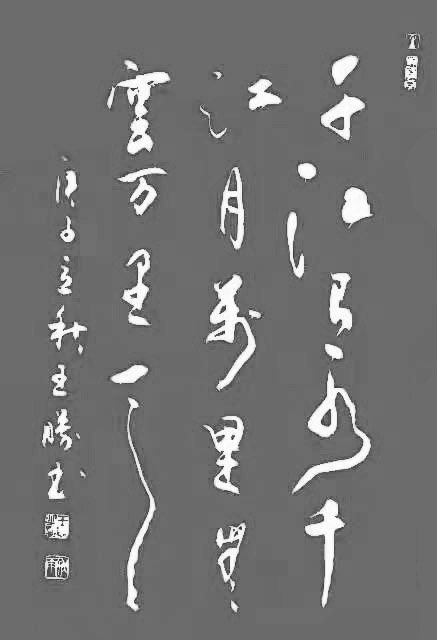 千江有水千
江月萬里無
雲万里天
庚子立秋王勝书